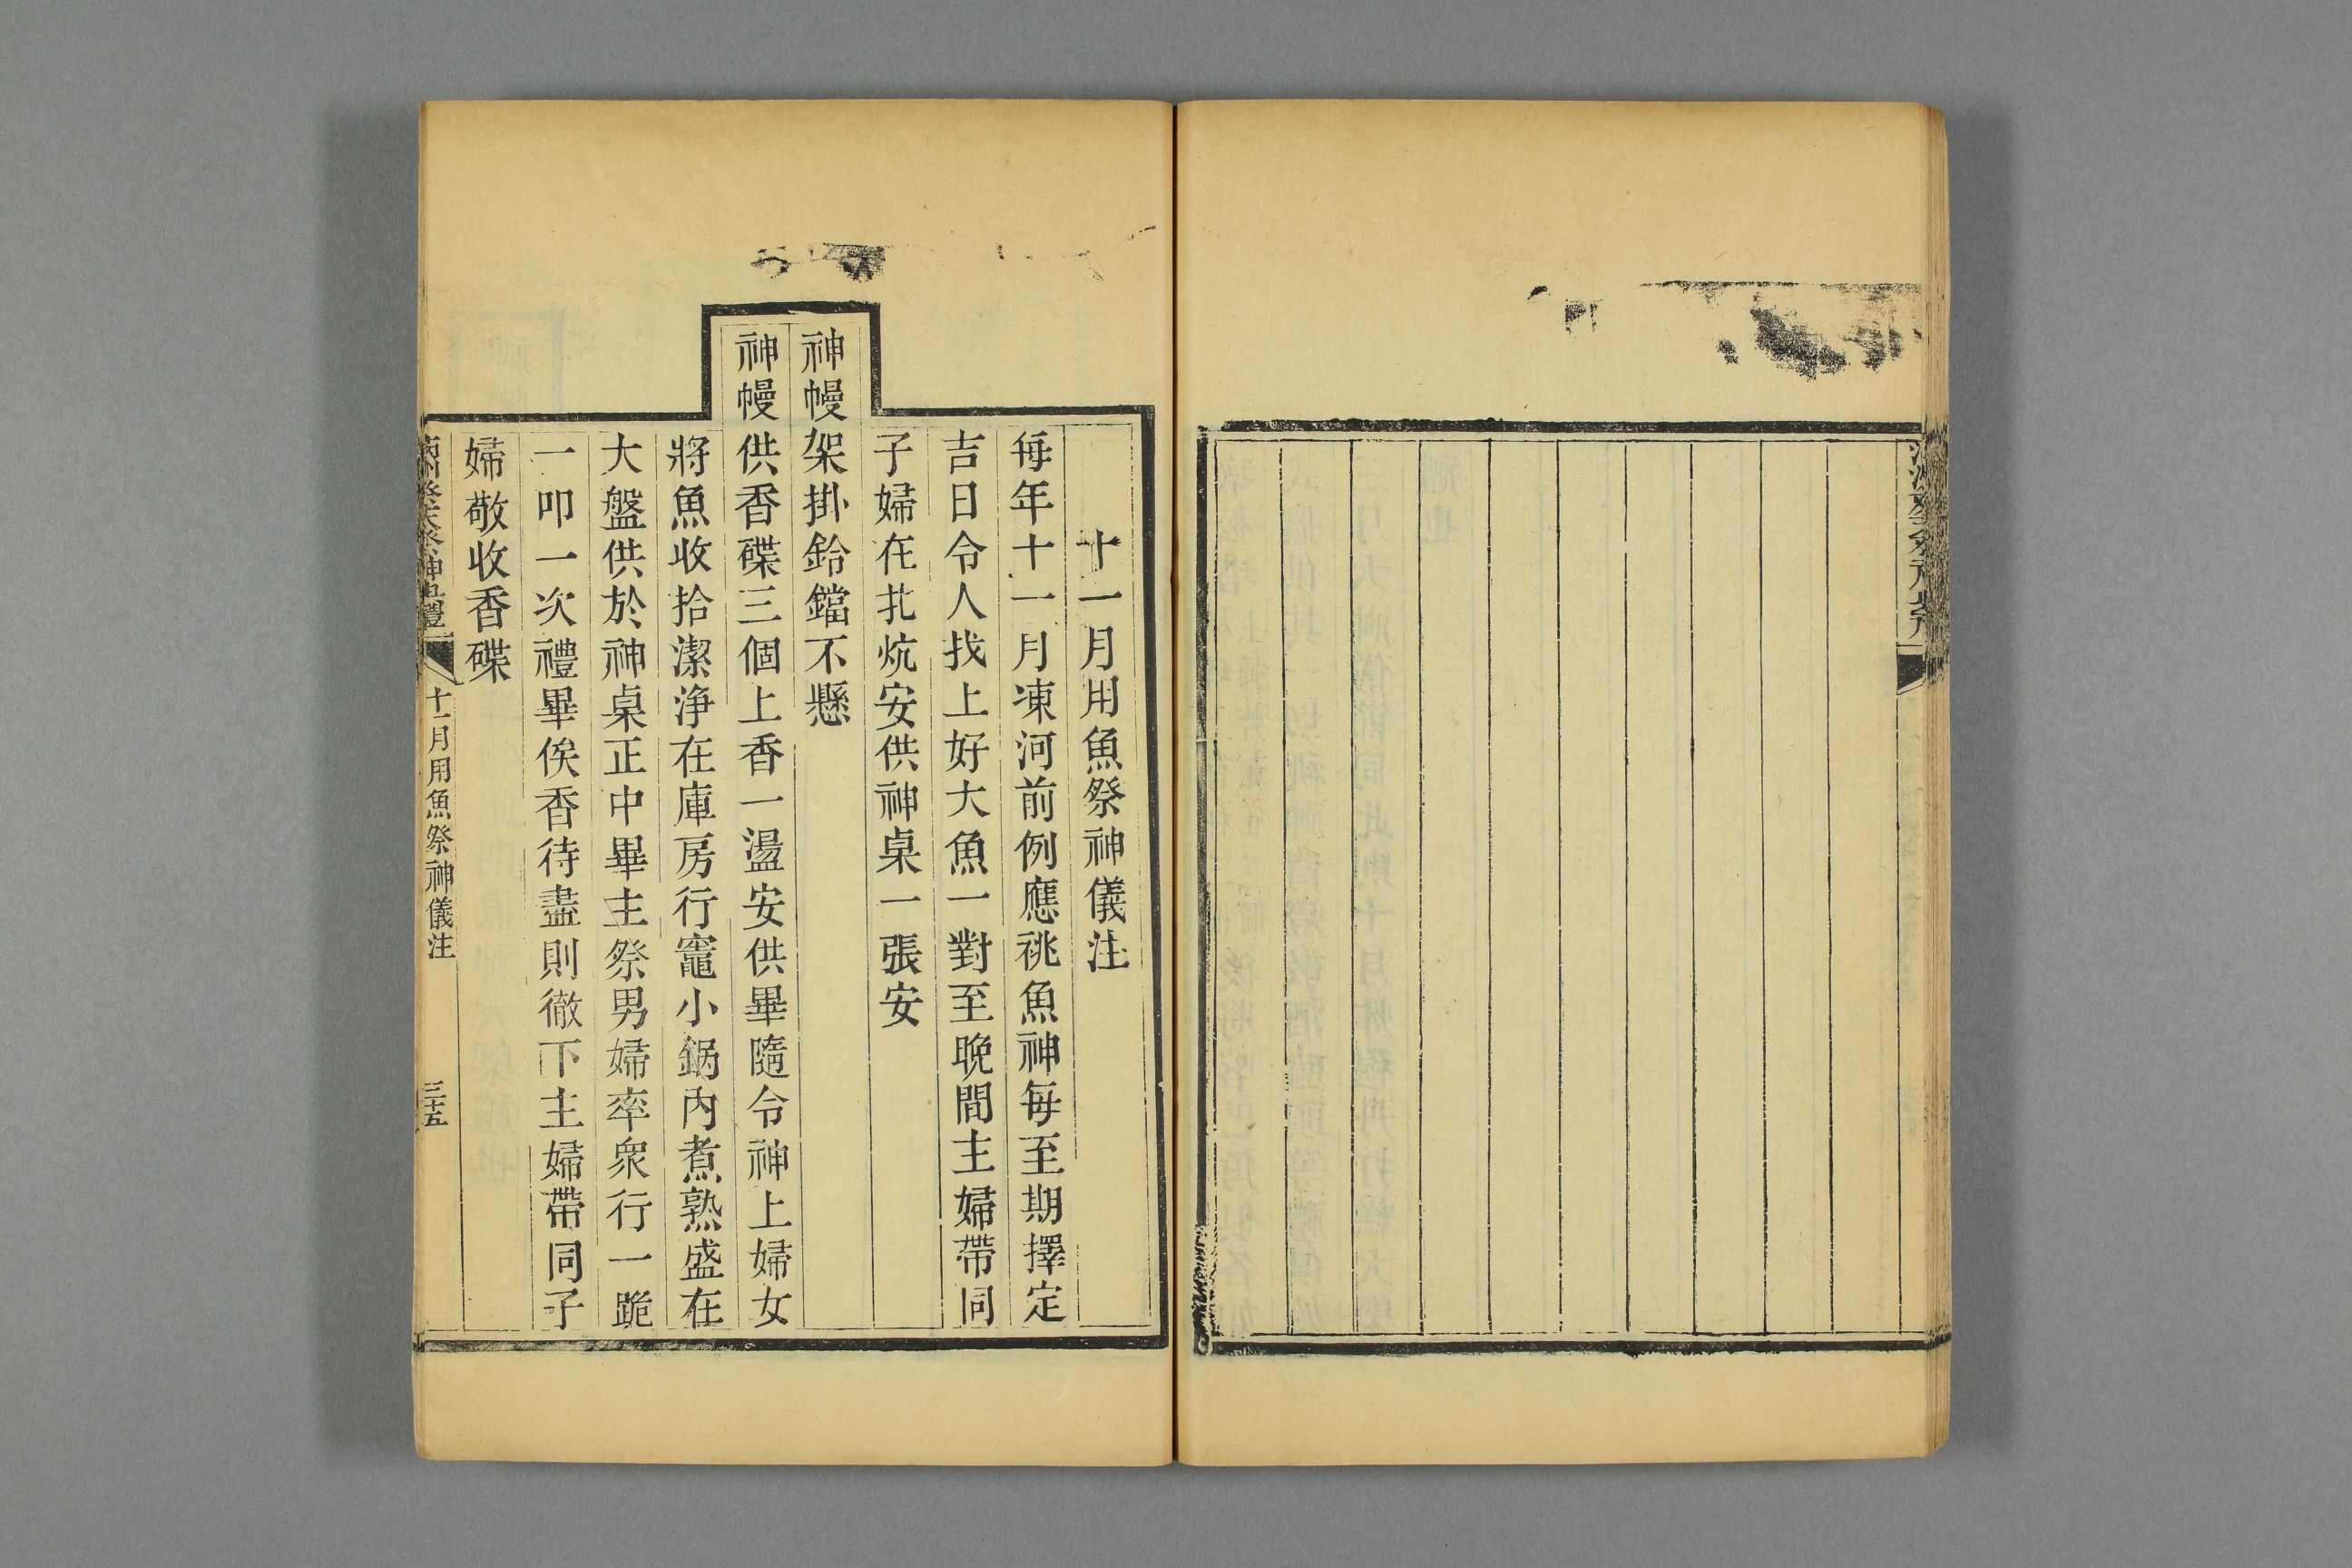 十一月用魚祭神儀注
每年十一月凍河前例應祧魚神每至期擇定
吉日令人找上好大魚一對至晚間主婦帶同
子婦在扎炕安供神桌一張安
神幔架掛鈴鐺不懸
神幔供香碟三個上香一盪安供畢隨令神上婦女
將魚收拾潔淨在庫房行竈小鍋內煮熟盛在
大盤供於神桌正中畢主祭男婦率衆行一跪
一叩一次禮畢俟香待盡則徹下主婦帶同子
婦敬收香碟
十一月用魚祭神儀注
三十五